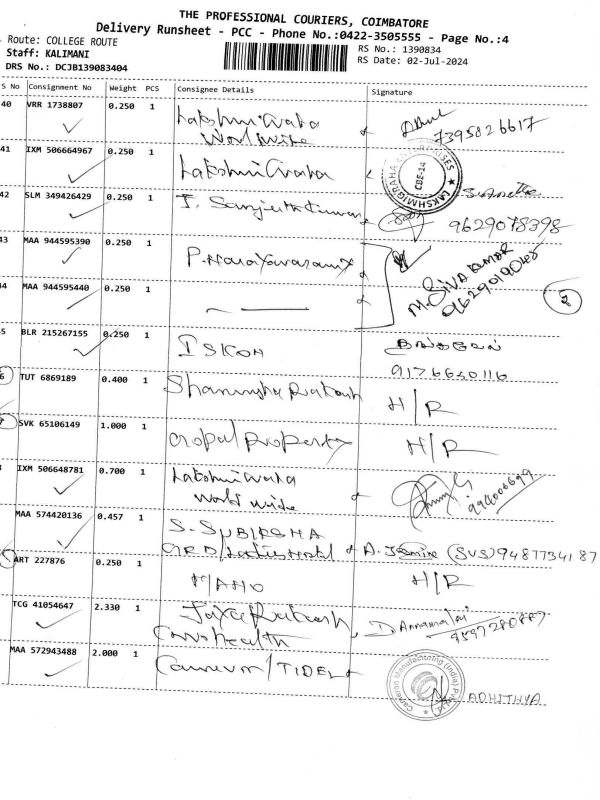 THE PROFESSIONAL COURIERS, COIMBATORE
Delivery Runsheet - PCC - Phone No.:0422-3505555 - Page No.:4
Route: COLLEGE ROUTE
Staff: KALIMANI
DRS No.: DCJB139083404
RS No.: 1390834
RS Date: 02-Jul-2024
S No Consignment No Weight PCS Consignee Details Signature
40 VRR 1738807 0.250 1 Lakshmi Graha
World Wide
7395826617
41 IXM 506664967 0.250 1 Lakshmi Graha
LAKSHMIGRAHA CBE-14
42 SLM 349426429 0.250 1
9629078398
43 MAA 944595390 0.250 1
M. SIVA KUMAR
9629019048
44 MAA 944595440 0.250 1
5 BLR 215267155 0.250 1 ISKON
9176650116
6 TUT 6869189 0.400 1 H/R
7 SVK 65106149 1.000 1 Gopal Property H/R
IXM 506648781 0.700 1 Lakshmi Graha
World Wide
MAA 574420136 0.457 1 S. SUBIKSHA
A. Jasmine (SVS) 9487734187
ART 227876 0.250 1 H/R
TCG 41054647 2.330 1 Jaya Prakash
D Annamalai
MAA 572943488 2.000 1 Cameron / TIDEL
Cameron Manufacturing (India) Pvt Ltd
ADHITHYA